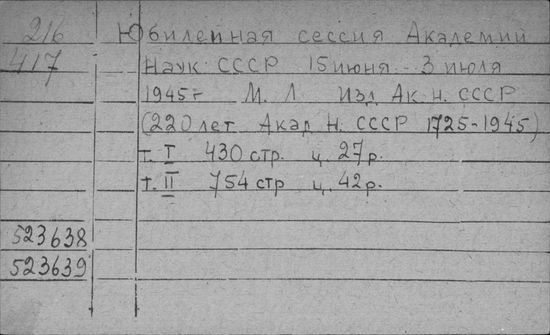 216 Юбилейная сессия Академий
417 Наук СССР 15 июня - 3 июля
1945 г М. Л Изд Ак. н. СССР
(220 лет Акад Н. СССР 1725-1945)
т. I 430 стр. ц. 27 р.
т. II 754 стр ц. 42 р.
523638
523639